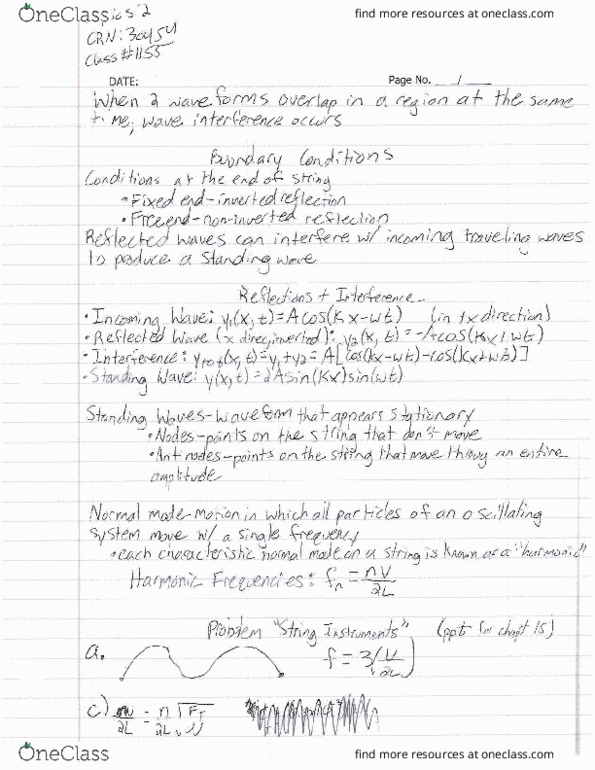 OneClass
find more resources at oneclass.com
ics 2
CRN: 30454
Class #1155
DATE:
Page No. ___/___
When 2 waveforms overlap in a region at the same
time, wave interference occurs
Boundary Conditions
Conditions at the end of string
• Fixed end - inverted reflection
• Free end - non-inverted reflection
Reflected waves can interfere w/ incoming traveling waves
to produce a standing wave
Reflections + Interference
• Incoming Wave: y₁(x, t) = A cos(Kx-wt) (in +x direction)
• Reflected Wave (x direc, inverted): y₂(x, t) = -Acos(Kx+wt)
• Interference: ytot(x, t) = y₁+y₂ = A[cos(kx-wt)-cos(kx+wt)]
• Standing Wave: y(x,t) = 2Asin(Kx)sin(wt)
Standing Waves - waveform that appears stationary
• Nodes - points on the string that don't move
• Antinodes - points on the string that move throug an entire
amplitude
Normal mode - motion in which all particles of an oscillating
system move w/ a single frequency
• each characteristic normal mode on a string is known as a "harmonic"
Harmonic Frequencies: fn = nV/2L
Problem "String Instruments" (ppt for chapt 15)
a. f = 3(V/2L)
c) nv/2L = n/2L √FT/μ
OneClass
find more resources at oneclass.com